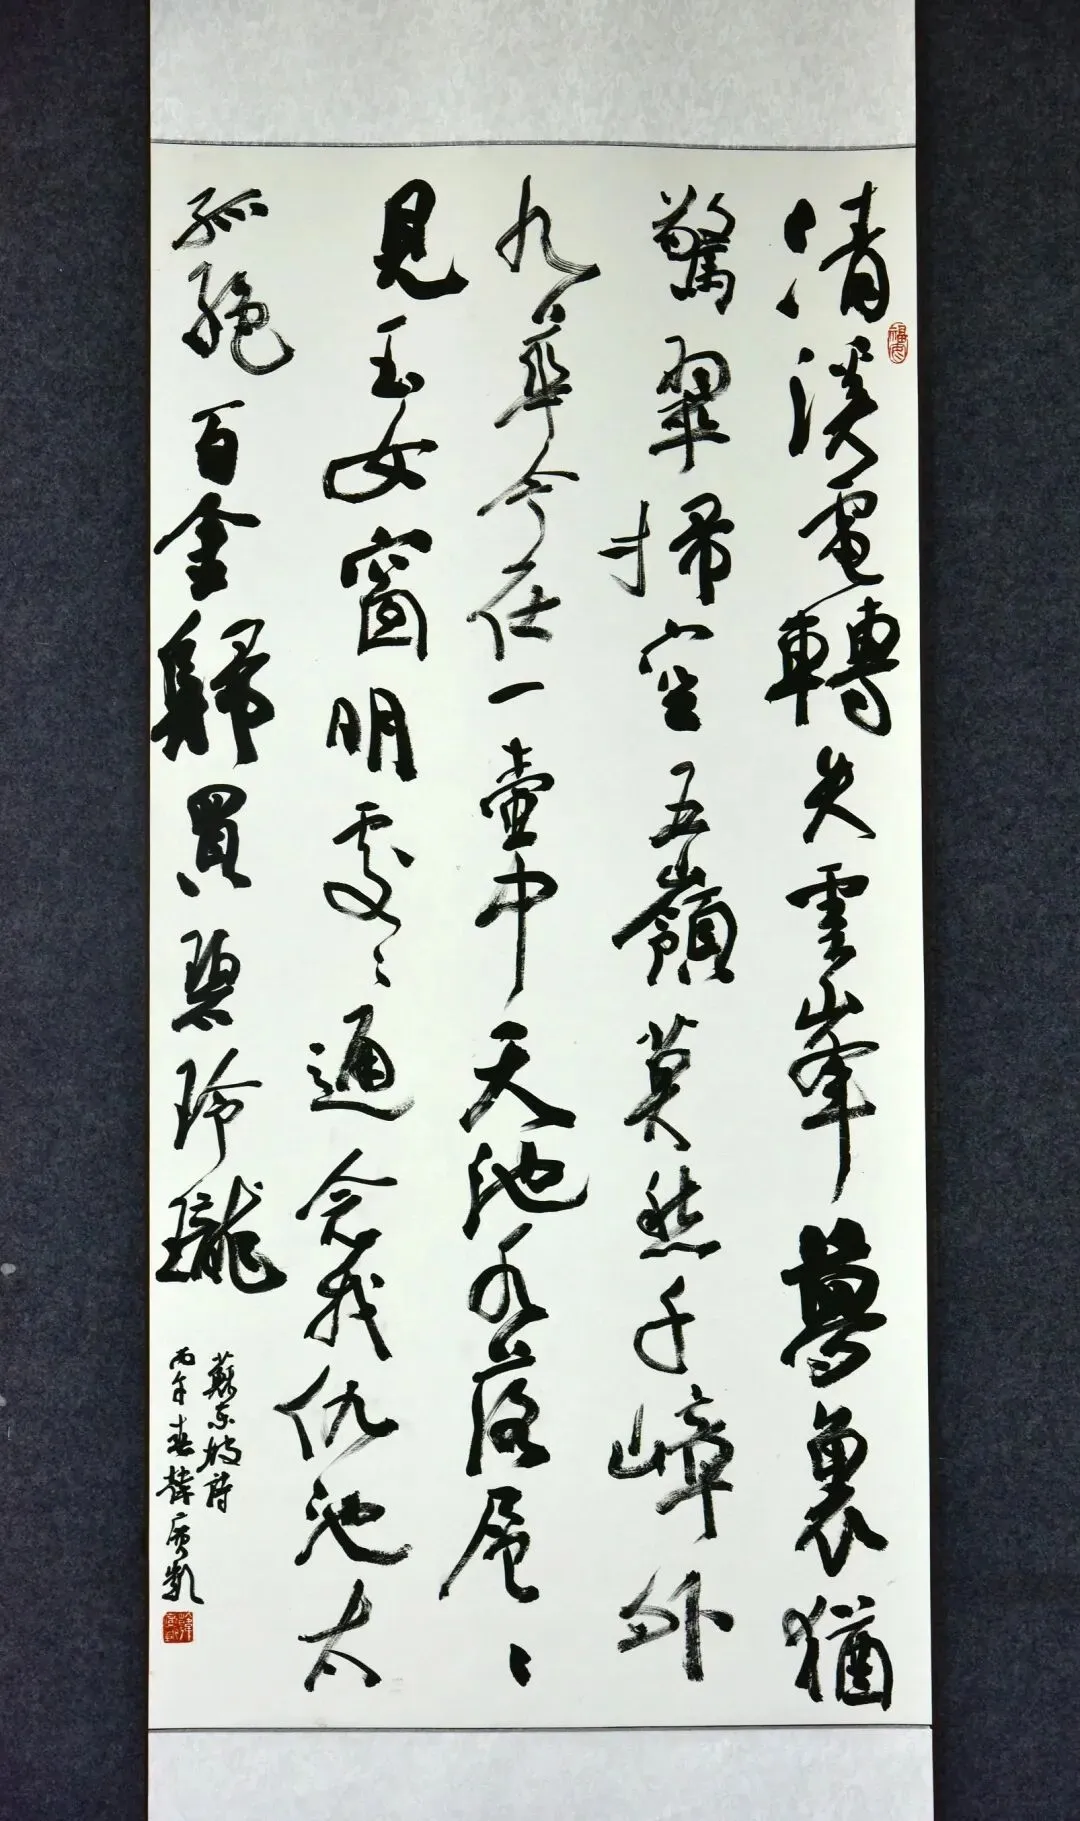 清溪電轉失雲峯夢裏猶
驚翠掃空五嶺莫愁千嶂外
九華今在一壺中天池水落層〻
見玉女窗明處〻通念我仇池太
孤絕百金歸買碧玲瓏
蘇東坡詩
丙午春韓廣凱